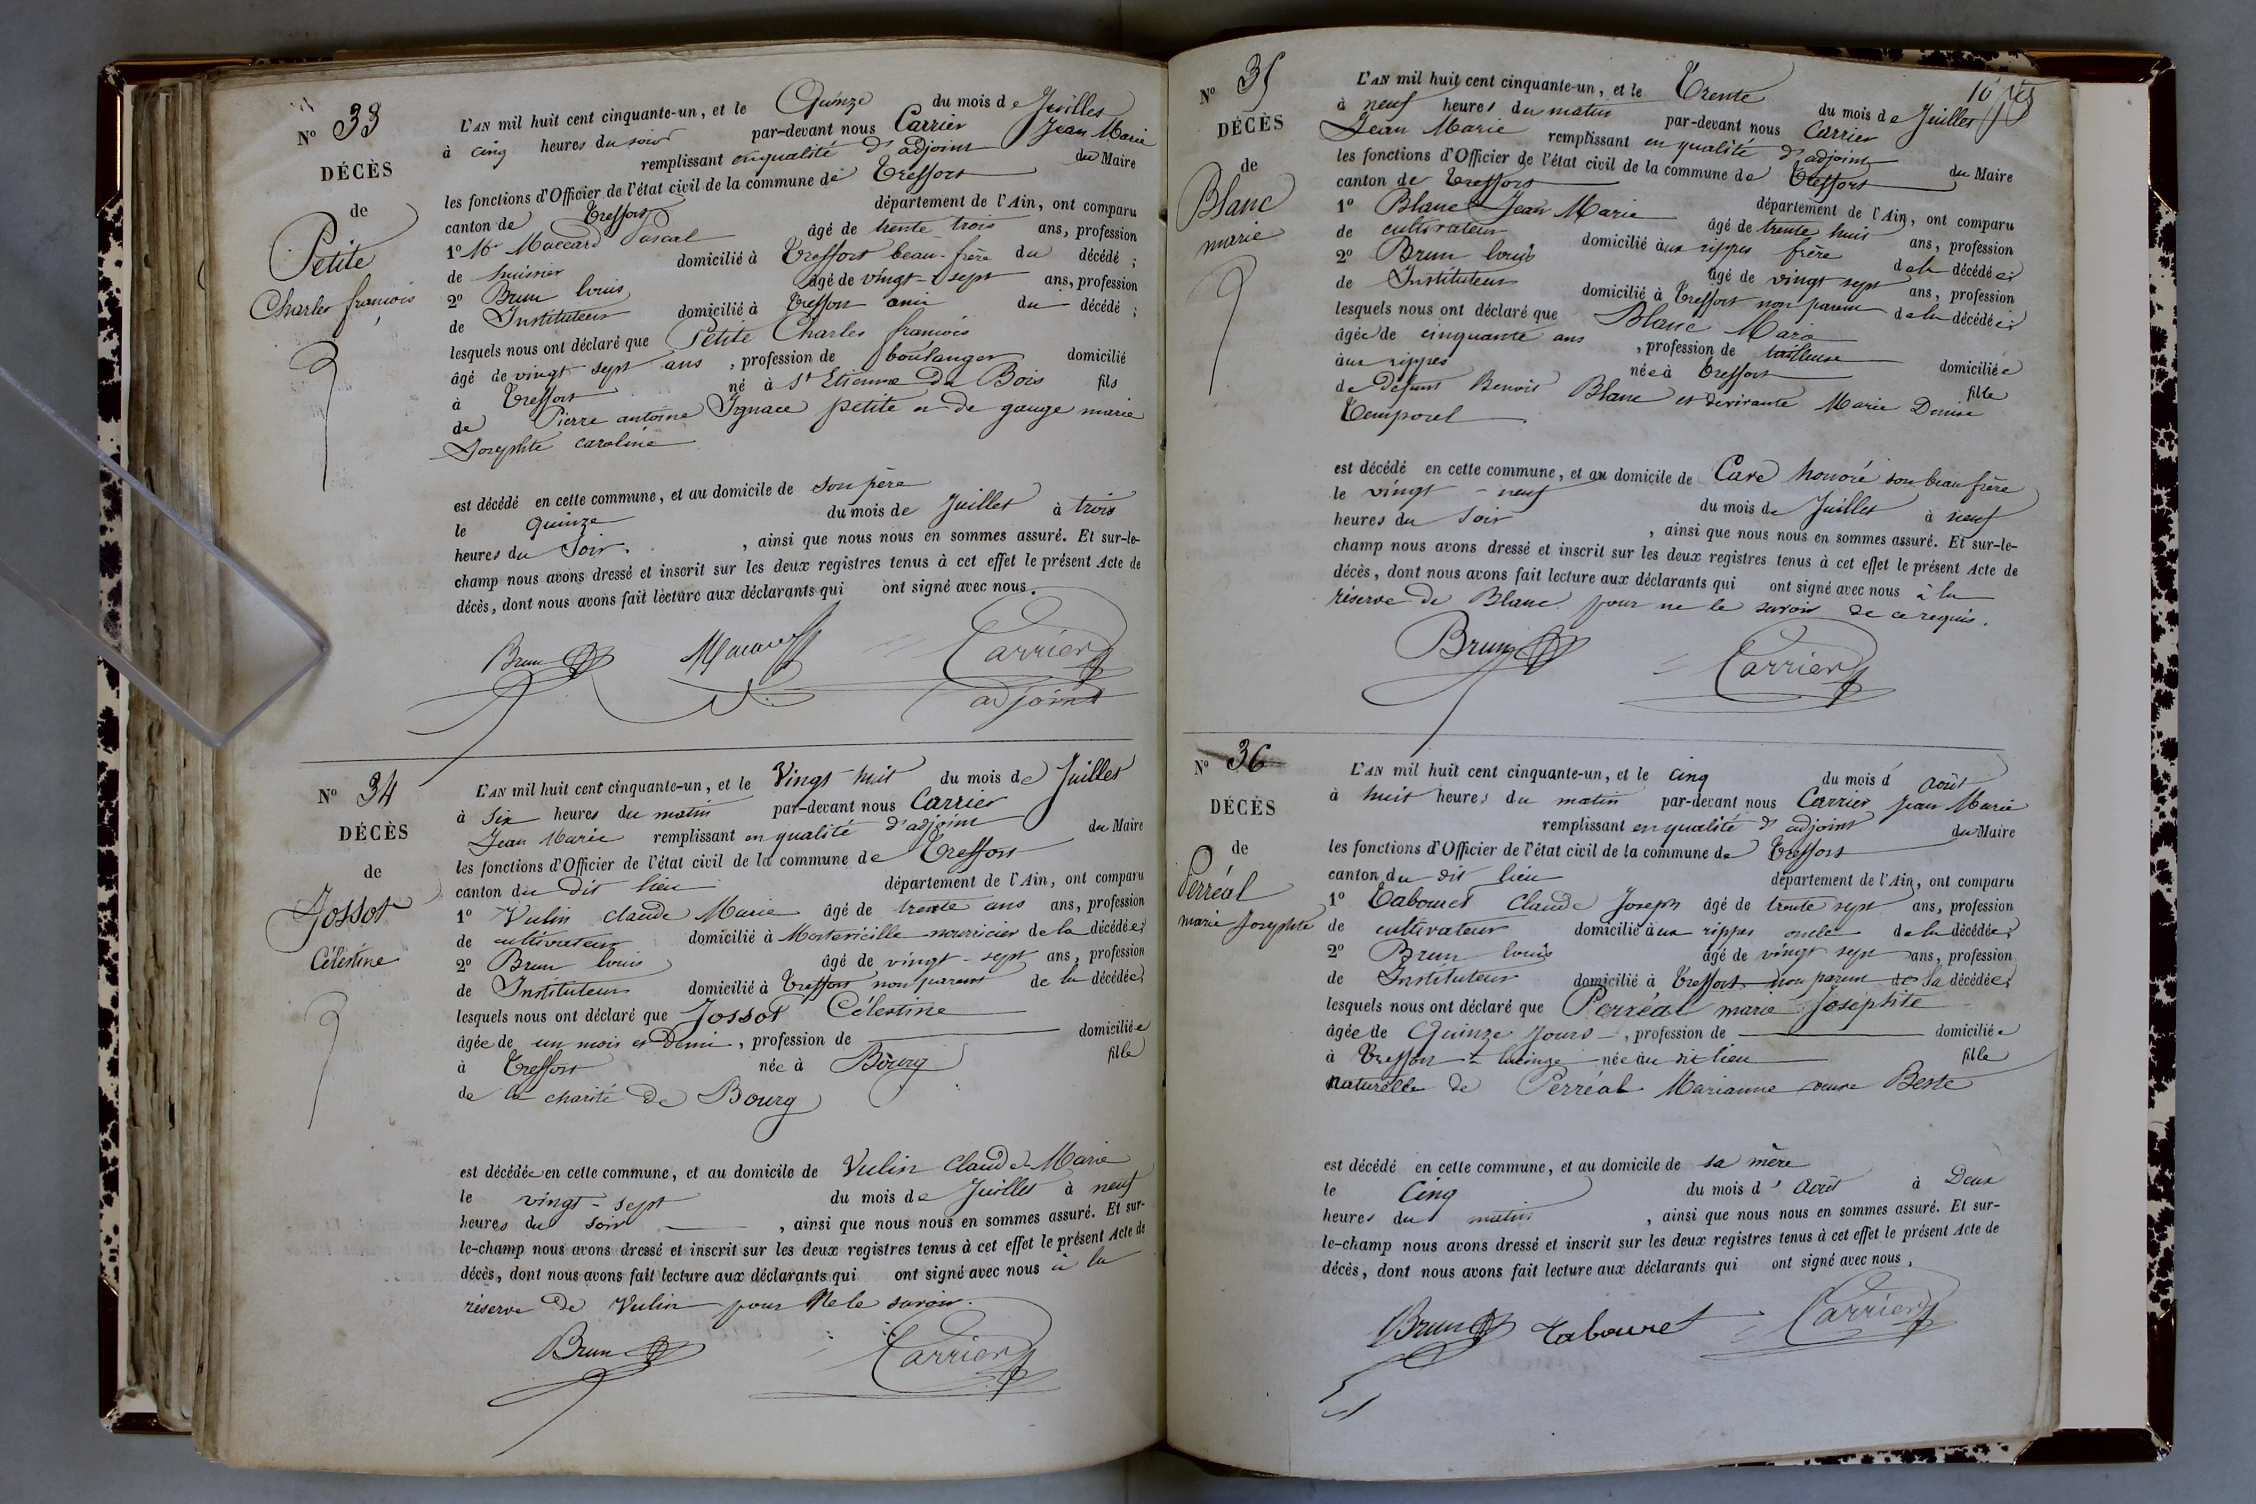 N° 33
DÉCÈS
de
Petite
Charles françois
L'AN mil huit cent cinquante-un, et le Quinze du mois de Juillet
à cinq heures du soir par-devant nous Carrier Jean Marie
remplissant en qualité d'adjoint du Maire
les fonctions d'Officier de l'état civil de la commune de Treffort
canton de Treffort département de l'Ain, ont comparu
1° Mr Maccard Pascal âgé de trente trois ans, profession
de huissier domicilié à Treffort beau-frère du décédé ;
2° Brun louis âgé de vingt-sept ans, profession
de Instituteur domicilié à Treffort ami du décédé ;
lesquels nous ont déclaré que Petite Charles francois
âgé de vingt sept ans , profession de boulanger domicilié
à Treffort né à St Etienne du Bois fils
de Pierre antoine Ignace petite et de gauge marie
Josephte caroline
est décédé en cette commune, et au domicile de son père
le quinze du mois de Juillet à trois
heures du Soir. , ainsi que nous nous en sommes assuré. Et sur-le-
champ nous avons dressé et inscrit sur les deux registres tenus à cet effet le présent Acte de
décès, dont nous avons fait lecture aux déclarants qui ont signé avec nous.
Brun Carrier
adjoint
N° 34
DÉCÈS
de
Jossot
Célestine
L'AN mil huit cent cinquante-un, et le Vingt huit du mois de Juillet
à Six heures du matin par-devant nous Carrier
Jean Marie remplissant en qualité d'adjoint du Maire
les fonctions d'Officier de l'état civil de la commune de Treffort
canton du dit lieu département de l'Ain, ont comparu
1° Vulin claude Marie âgé de trente ans ans, profession
de cultivateur domicilié à nourricier de la décédée ;
2° Brun louis âgé de vingt-sept ans, profession
de Instituteur domicilié à Treffort non parent de la décédée ;
lesquels nous ont déclaré que Jossot Célestine
âgée de un mois et demi , profession de domiciliée
à Treffort née à Bourg fille
de la charité de Bourg
est décédée en cette commune, et au domicile de Vulin Claude-Marie
le vingt-sept du mois de Juillet à neuf
heures du soir , ainsi que nous nous en sommes assuré. Et sur-
le-champ nous avons dressé et inscrit sur les deux registres tenus à cet effet le présent Acte de
décès, dont nous avons fait lecture aux déclarants qui ont signé avec nous à la
réserve de Vulin pour ne le savoir.
Brun Carrier
N° 35
DÉCÈS
de
Blanc
marie
L'AN mil huit cent cinquante-un, et le Trente du mois de Juillet
à neuf heures du matin par-devant nous Carrier
Jean Marie remplissant en qualité d'adjoint du Maire
les fonctions d'Officier de l'état civil de la commune de Treffort
canton de Treffort département de l'Ain, ont comparu
1° Blanc Jean Marie âgé de trente huit ans, profession
de cultivateur domicilié aux rippes frère de la décédée ;
2° Brun louis âgé de vingt sept ans, profession
de Instituteur domicilié à Treffort non parent de la décédée ;
lesquels nous ont déclaré que Blanc Marie
âgée de cinquante ans , profession de tailleuse domiciliée
aux rippes née à Treffort fille
de défunt Benoit Blanc et de vivante Marie Denise
Temporel
est décédé en cette commune, et au domicile de Cave honoré son beau frère
le vingt-neuf du mois de Juillet à neuf
heures du Soir , ainsi que nous nous en sommes assuré. Et sur-le-
champ nous avons dressé et inscrit sur les deux registres tenus à cet effet le présent Acte de
décès, dont nous avons fait lecture aux déclarants qui ont signé avec nous à la
réserve de Blanc pour ne le savoir de ce requis.
Brun Carrier
N° 36
DÉCÈS
de
Perréal
marie Josephte
L'AN mil huit cent cinquante-un, et le cinq du mois d août
à huit heures du matin par-devant nous Carrier jean Marie
remplissant en qualité d'adjoint du Maire
les fonctions d'Officier de l'état civil de la commune de Treffort
canton du dit lieu département de l'Ain, ont comparu
1° Tabouret Claude Joseph âgé de trente sept ans, profession
de cultivateur domicilié aux rippes oncle de la décédée ;
2° Brun louis âgé de vingt sept ans, profession
de Instituteur domicilié à Treffort non parent de la décédée ;
lesquels nous ont déclaré que Perréal marie Josephte
âgée de Quinze jours , profession de domiciliée
à Treffort née au dit lieu fille
naturelle de Perréal Marianne veuve Beste
est décédé en cette commune, et au domicile de sa mère
le Cinq du mois d'août à Deux
heures du matin , ainsi que nous nous en sommes assuré. Et sur-
le-champ nous avons dressé et inscrit sur les deux registres tenus à cet effet le présent Acte de
décès, dont nous avons fait lecture aux déclarants qui ont signé avec nous.
Brun Tabouret Carrier